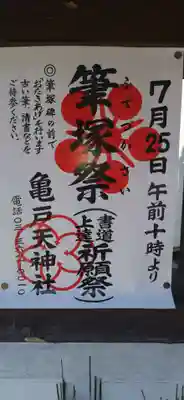 7月25日午前十時より
ふでづかさい
筆塚祭
(書道上達祈願祭)
◎筆塚碑の前で
おたきあげを行います
古い筆、清書などを
ご持参ください。
亀戸天神社